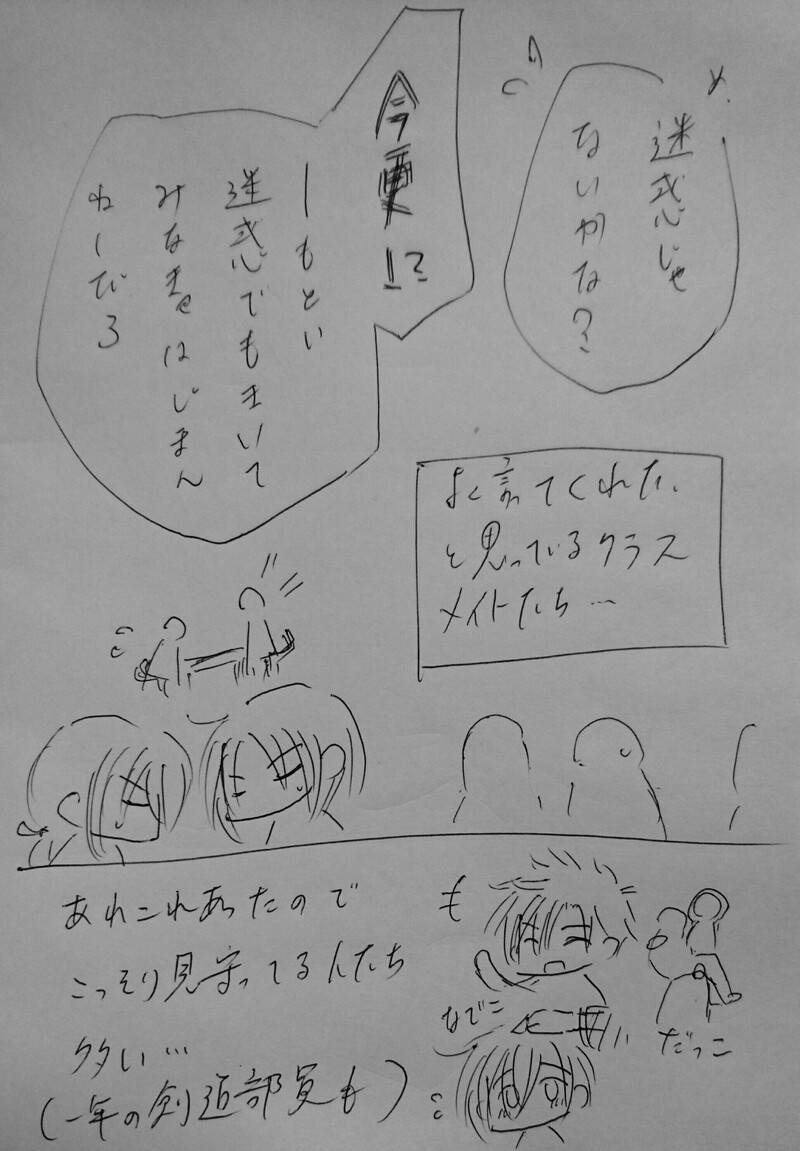 め、
迷惑じゃ
ないかな？
今更!?
ーもとい
迷惑でもまいて
みなきゃはじまん
ねーだろ
よく言ってくれた、
と思っているクラス
メイトたち…
あれこれあったので
こっそり見守ってる人たち
多い…
(一年の剣道部員も)
も
なでこ
だっこ